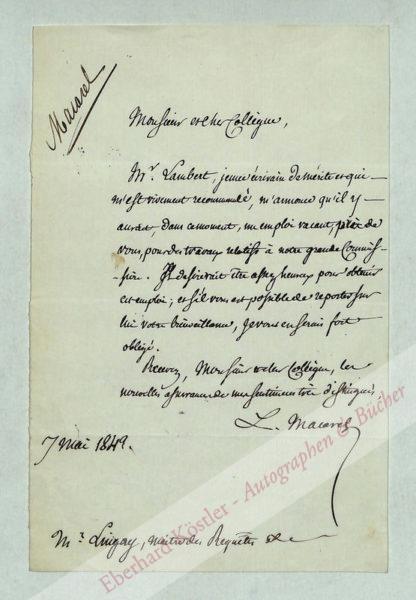 Macarel
Monsieur et cher Collègue,
Mr. Lambert, jeune écrivain de mérite et qui
m'est vivement recommandé, m'annonce qu'il y
aurait, dans ce moment, un emploi vacant, près de
vous, pour des travaux relatifs à notre grande Commis-
sion. Il désirerait être assez heureux pour obtenir
cet emploi; et s'il vous est possible de reporter sur
lui votre bienveillance, je vous en serais fort
obligé.
Recevez, Monsieur et cher Collègue, les
nouvelles assurances de mes sentimens très distingués,
L. Macarel
7 mai 1849.
Mr. Lingay, maître des Requêtes &c
Eberhard Köstler - Autographen & Bücher